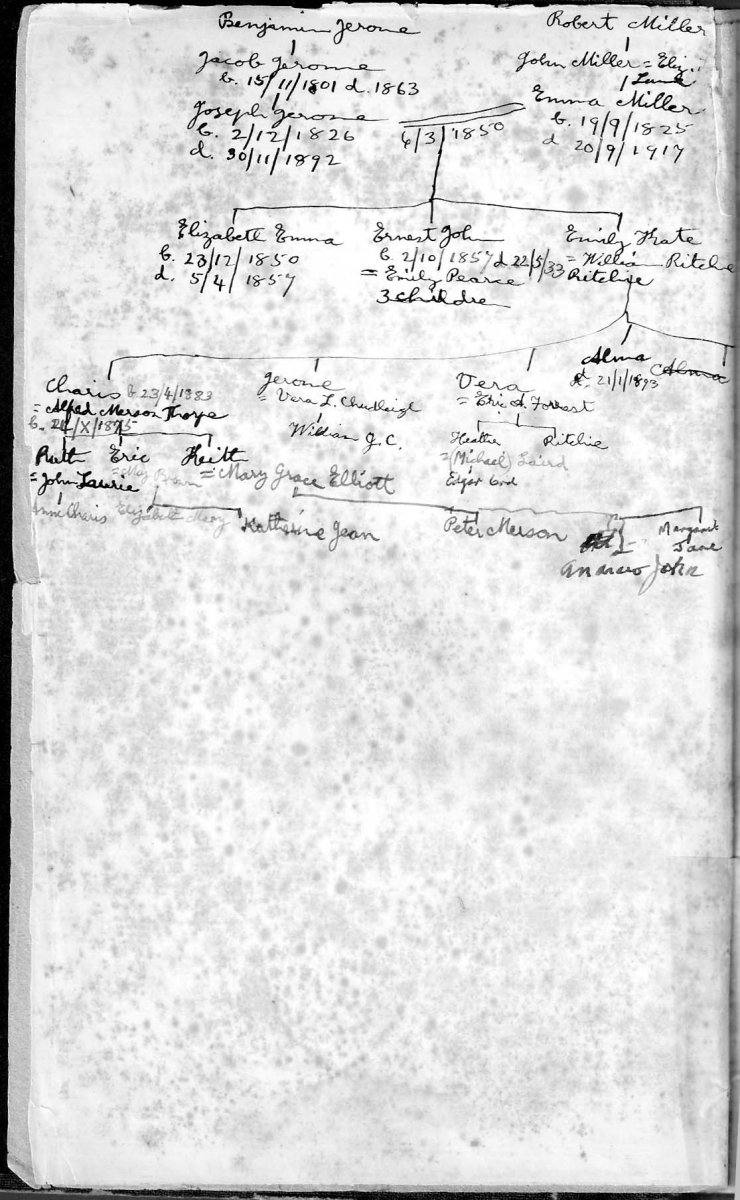 Benjamin Jerome
Robert Miller
Jacob Jerome
b. 15/11/1801 d. 1863
John Miller = Eliz.
Joseph Jerome
b. 2/12/1826
d. 30/11/1892
6/3/1850
Emma Miller
b. 19/9/1825
d 20/9/1917
Elizabeth Emma
b. 23/12/1850
d. 5/4/1857
Ernest John
b. 2/10/1857 d 22/5/33
= Emily Pearce
3 children
Emily Kate
= William Ritchie
Ritchie
Charis b 23/4/1883
= Alfred Merson Thorpe
Jerome
= Vera L. Chudleigh
William J. C.
Vera
= Eric A. Forrest
Alma
d. 21/1/1893
Alma
Heather
= (Michael) Laird
Ritchie
Ruth
= John Laurie
Eric
= May Brown
Keith
= Mary Grace Elliott
Anne Charis
Elizabeth Mary
Katherine Jean
Peter Merson
Andrew John
Margaret
Jane